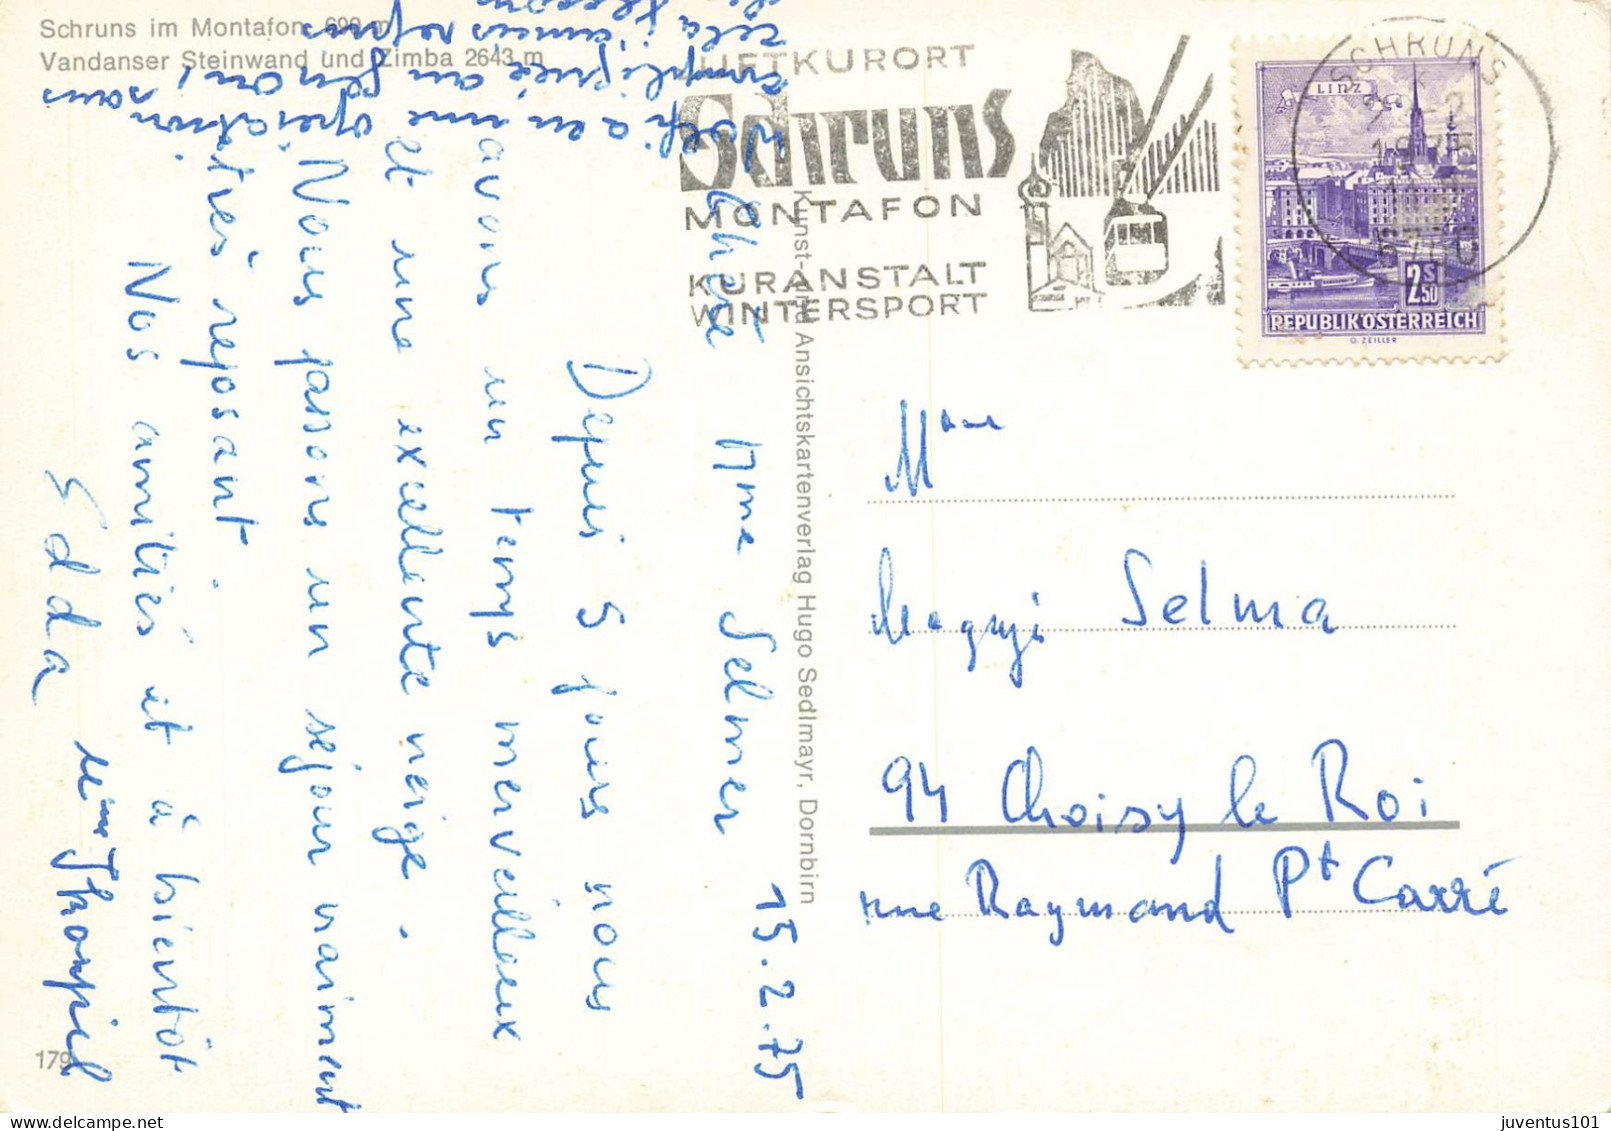 Schruns im Montafon 690 m
Vandanser Steinwand und Zimba 2643 m
LUFTKURORT
Schruns
MONTAFON
KURANSTALT
WINTERSPORT
SCHRUNS
1975
6780
LINZ
2S50
REPUBLIK ÖSTERREICH
O. ZEILLER
Kunst- und Ansichtskartenverlag Hugo Sedlmayr, Dornbirn
15.2.75
Chère Mme Selmer
Depuis 5 jours nous
avons un temps merveilleux
et une excellente neige.
Nous passons un séjour vraiment
très reposant.
Nos amitiés et à bientôt
Edda
a eu une opération
au genou, sans
cela
Mme
Magyi Selma
94 Choisy le Roi
rue Raymond Pt Carré
179
juventus101